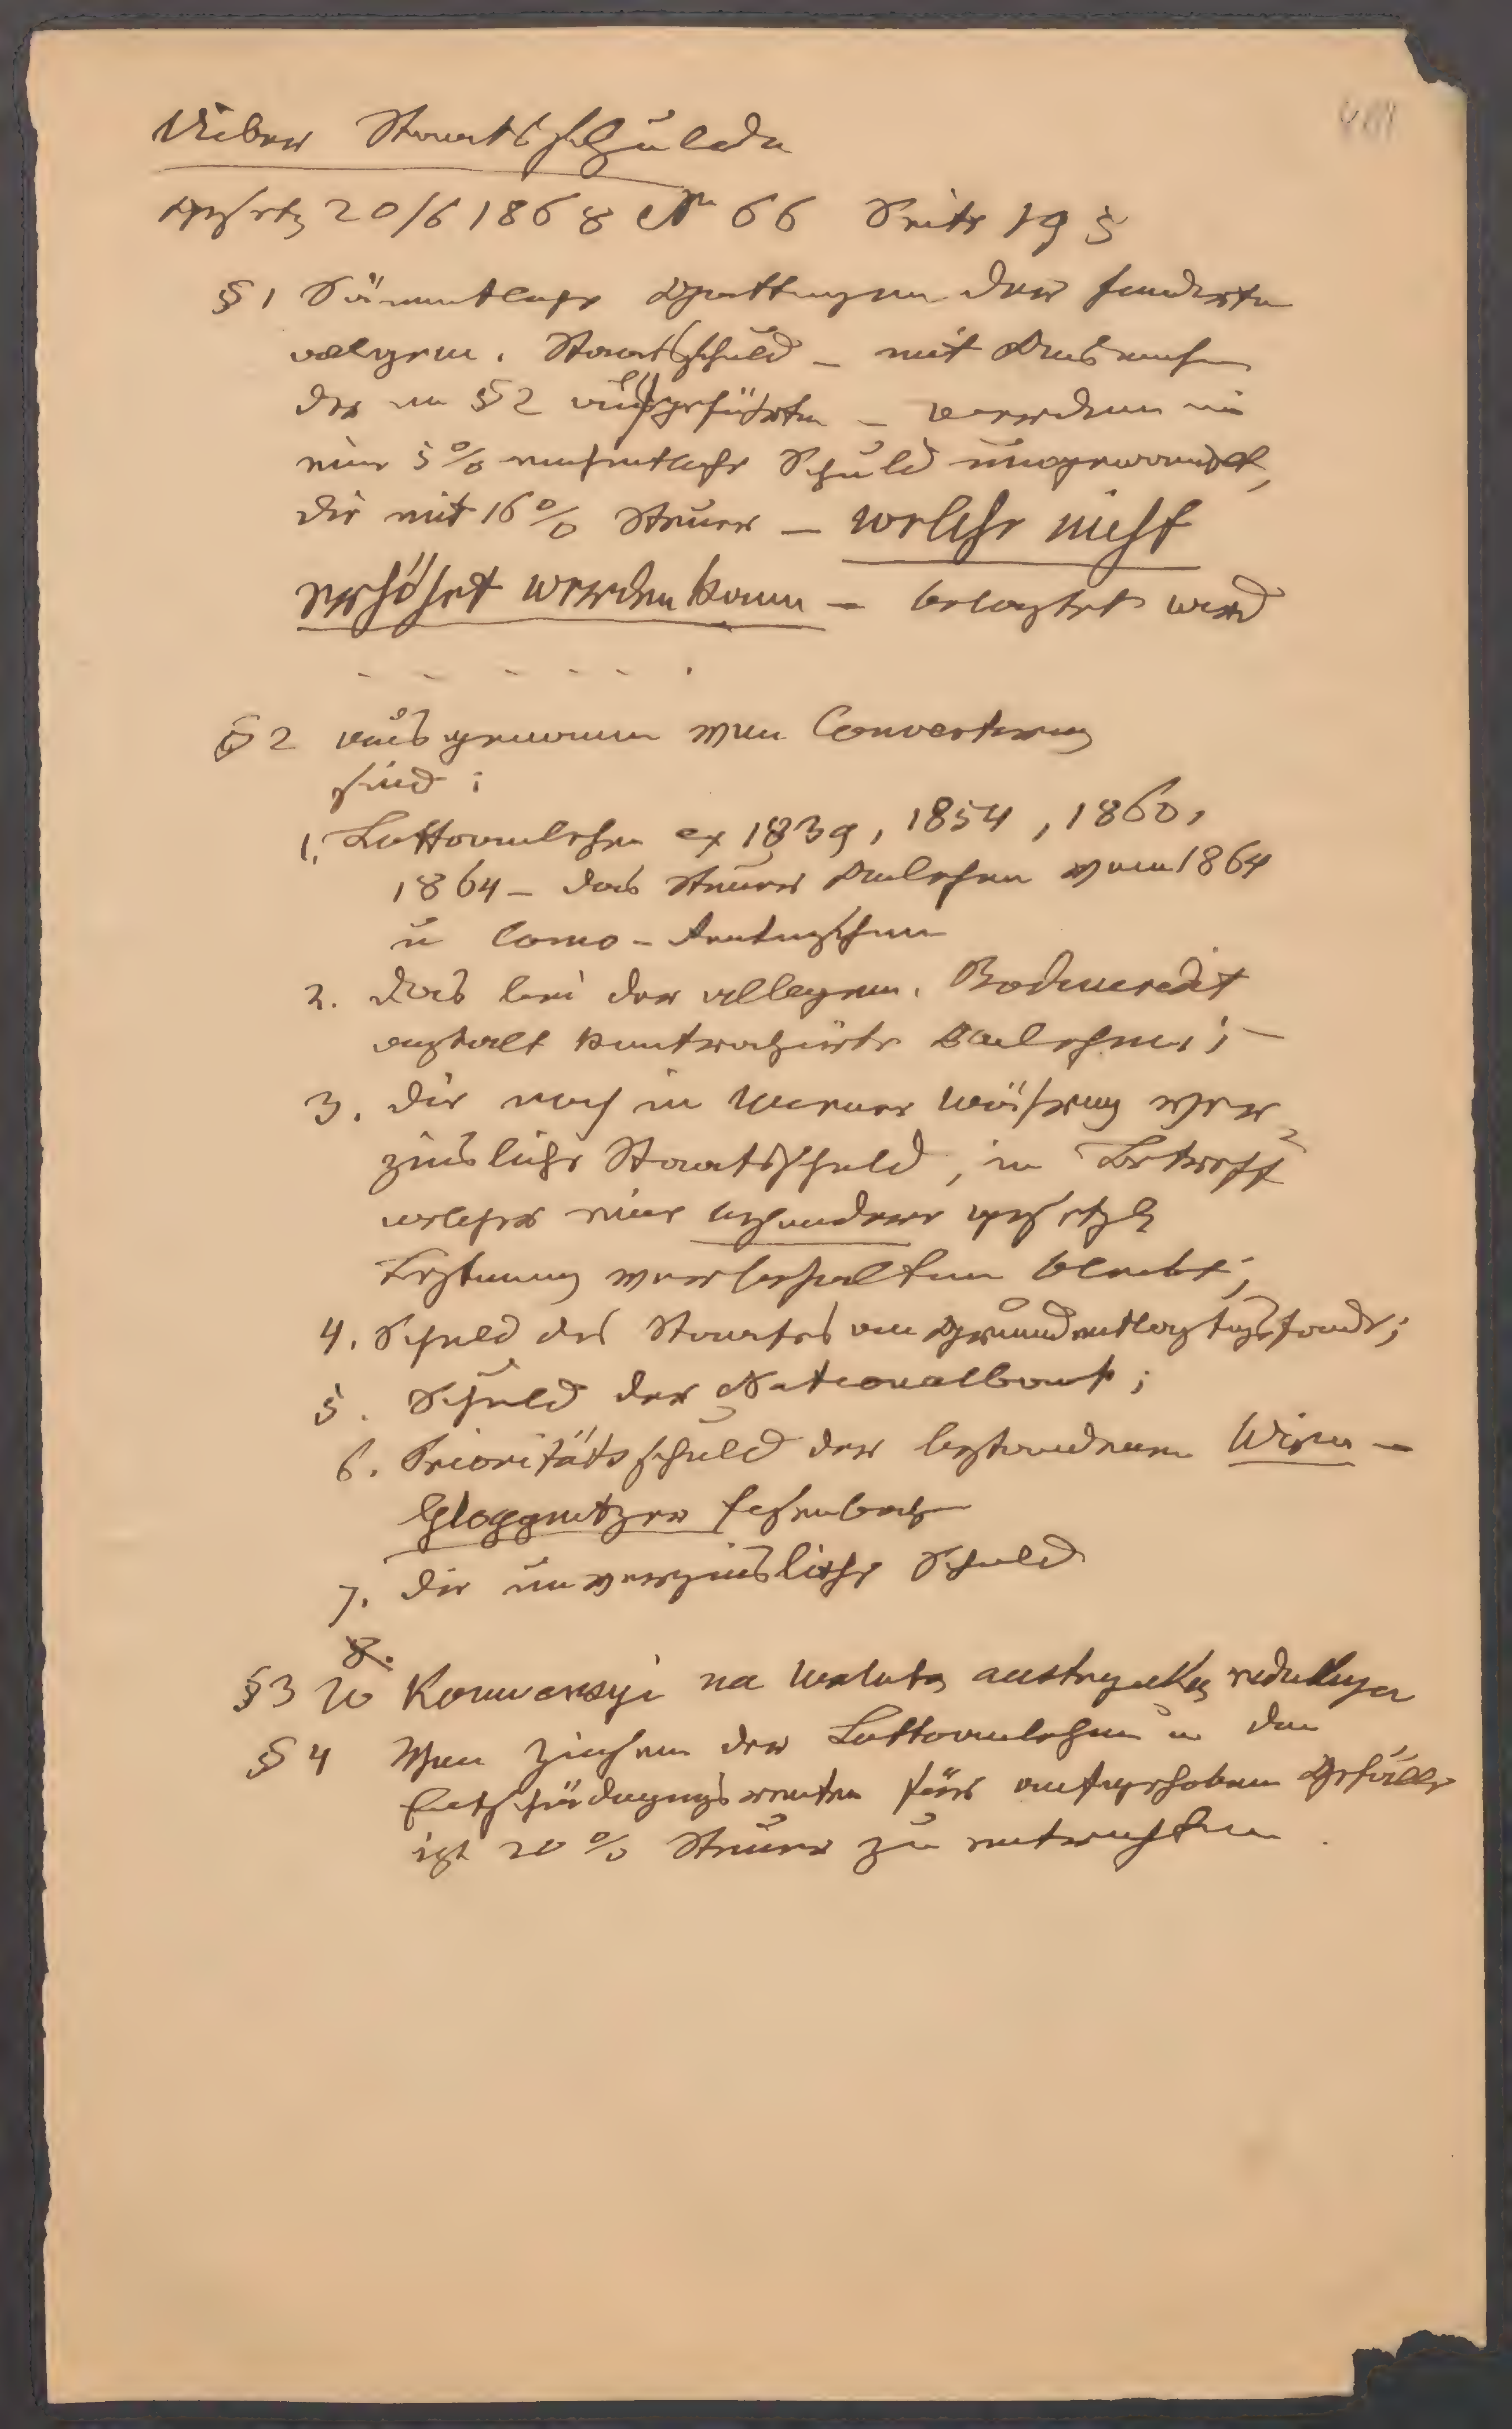 Ueber Staatsschulden
Gesetz 20/6 1868 Nr 66 Seite 195
§ 1 Sämmtliche Gattungen der fundirten
allgem. Staatsschuld – mit Ausnahme
der im § 2 aufgeführten – werden in
eine 5% einheitliche Schuld umgewandelt,
die mit 16% Steuer – welche nicht
erhöhet werden kann – belastet wird
- - - - - .
§ 2 ausgenommen von Convertirung
sind:
1. Lottoanlehen ex 1839, 1854, 1860,
1864 – das Steuer Anlehen vom 1864
u Como-Rentenscheine
2. das bei der allgem. Bodencredit
anstalt kontrahirte Anlehen; –
3. die noch in Wiener Währung ver-
zinsliche Staatsschuld, in Betreff
welcher eine besondere gesetzl
Bestimmung vorbehalten bleibt;
4. Schuld des Staates an Grundentlastungsfonde;
5. Schuld der Nationalbank;
6. Prioritätsschuld der bestandenen Wien-
Gloggnitzer Eisenbahn
7. die unverzinsliche Schuld
8.
§ 3 W Konwersyi na walutę austryacką redukuja
§ 4 Von Zinsen der Lottoanlehen u den
Entschädigungsrenten für aufgehobene Gefälle
ist 20% Steuer zu entrichten.